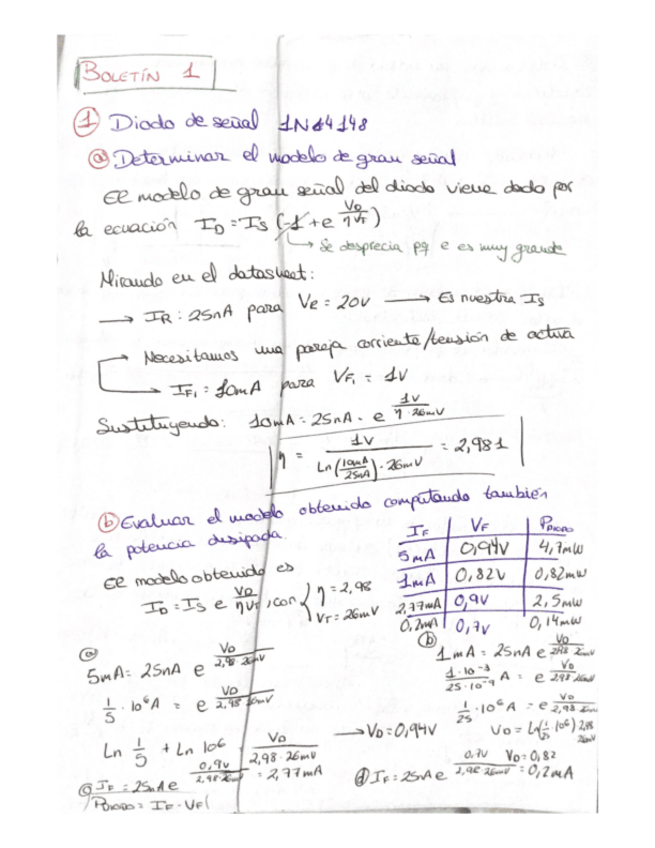 BOLETÍN 1
① Diodo de señal 1N4148
ⓐ Determinar el modelo de gran señal
El modelo de gran señal del diodo viene dado por
la ecuación I_D = I_S (-1 + e^(V_D/ηV_T))
→ Se desprecia pq e es muy grande
Mirando en el datasheet:
→ I_R : 25nA para Ve = 20V → Es nuestra I_S
Necesitamos una pareja corriente/tensión de activa
→ I_F1 = 10mA para V_F1 = 1V
Sustituyendo: 10mA = 25nA · e^(1V/η·26mV)
η = 1V / (Ln(10mA/25nA) · 26mV) = 2,981
ⓑ Evaluar el modelo obtenido computando también
la potencia disipada.
I_F | V_F | P_DIODO
5mA | 0,94V | 4,7mW
1mA | 0,82V | 0,82mW
2,77mA | 0,9V | 2,5mW
0,2mA | 0,7V | 0,14mW
El modelo obtenido es
I_D = I_S e^(V_D/ηV_T), con { η = 2,98
V_T = 26mV
ⓐ
5mA = 25nA e^(V_D/2,98·26mV)
1/5 · 10⁶A = e^(V_D/2,98·26mV)
Ln 1/5 + Ln 10⁶ = V_D/2,98·26mV → V_D = 0,94V
ⓑ
1mA = 25nA e^(V_D/2,98·26mV)
1·10⁻³/25·10⁻⁹ A = e^(V_D/2,98·26mV)
1/25 · 10⁶A = e^(V_D/2,98·26mV)
V_D = Ln(1/25 · 10⁶) 2,98 · 26mV
V_D = 0,82
ⓒ I_F = 25nA e^(0,9V/2,98·26mV) = 2,77mA
P_DIODO = I_F · V_F
ⓓ I_F = 25nA e^(0,7V/2,98·26mV) = 0,2mA